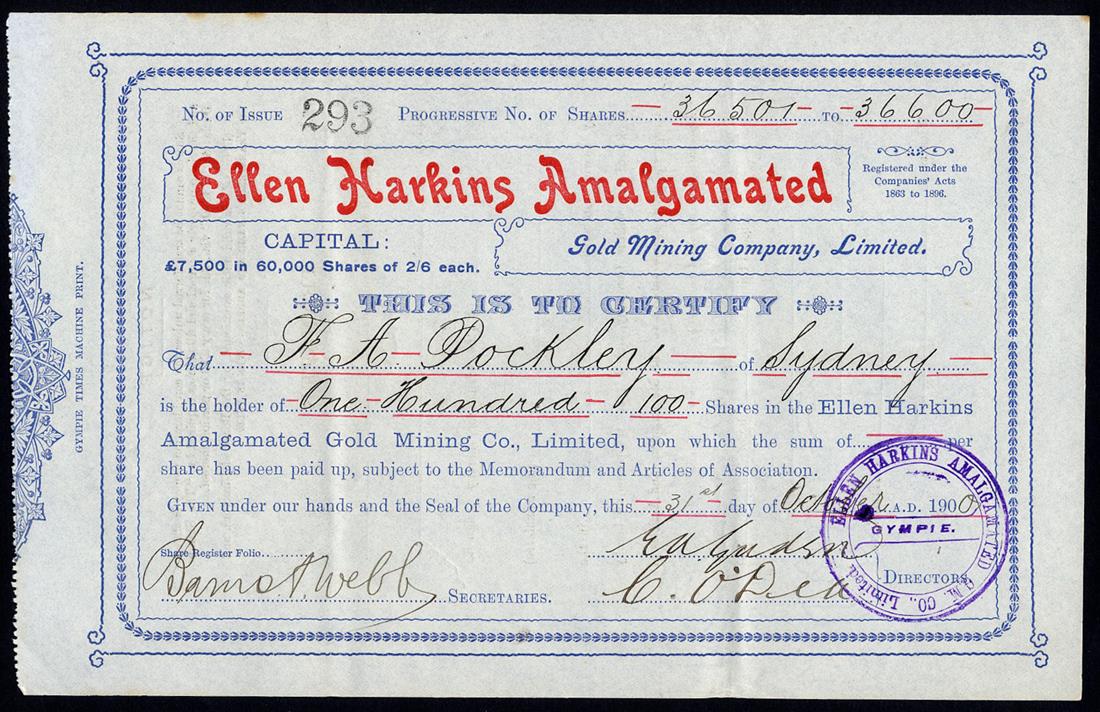 No. of Issue 293 Progressive No. of Shares 36501 to 36600
Ellen Harkins Amalgamated
Registered under the
Companies' Acts
1863 to 1896.
CAPITAL:
£7,500 in 60,000 Shares of 2/6 each.
Gold Mining Company, Limited.
THIS IS TO CERTIFY
That F A Pockley of Sydney
is the holder of One Hundred 100 Shares in the Ellen Harkins
Amalgamated Gold Mining Co., Limited, upon which the sum of per
share has been paid up, subject to the Memorandum and Articles of Association.
Given under our hands and the Seal of the Company, this 31st day of October A.D. 1900
Share Register Folio
Webb Secretaries.
C. O'Dea Directors.
ELLEN HARKINS AMALGAMATED G.M. CO., Limited
GYMPIE.
GYMPIE TIMES MACHINE PRINT.